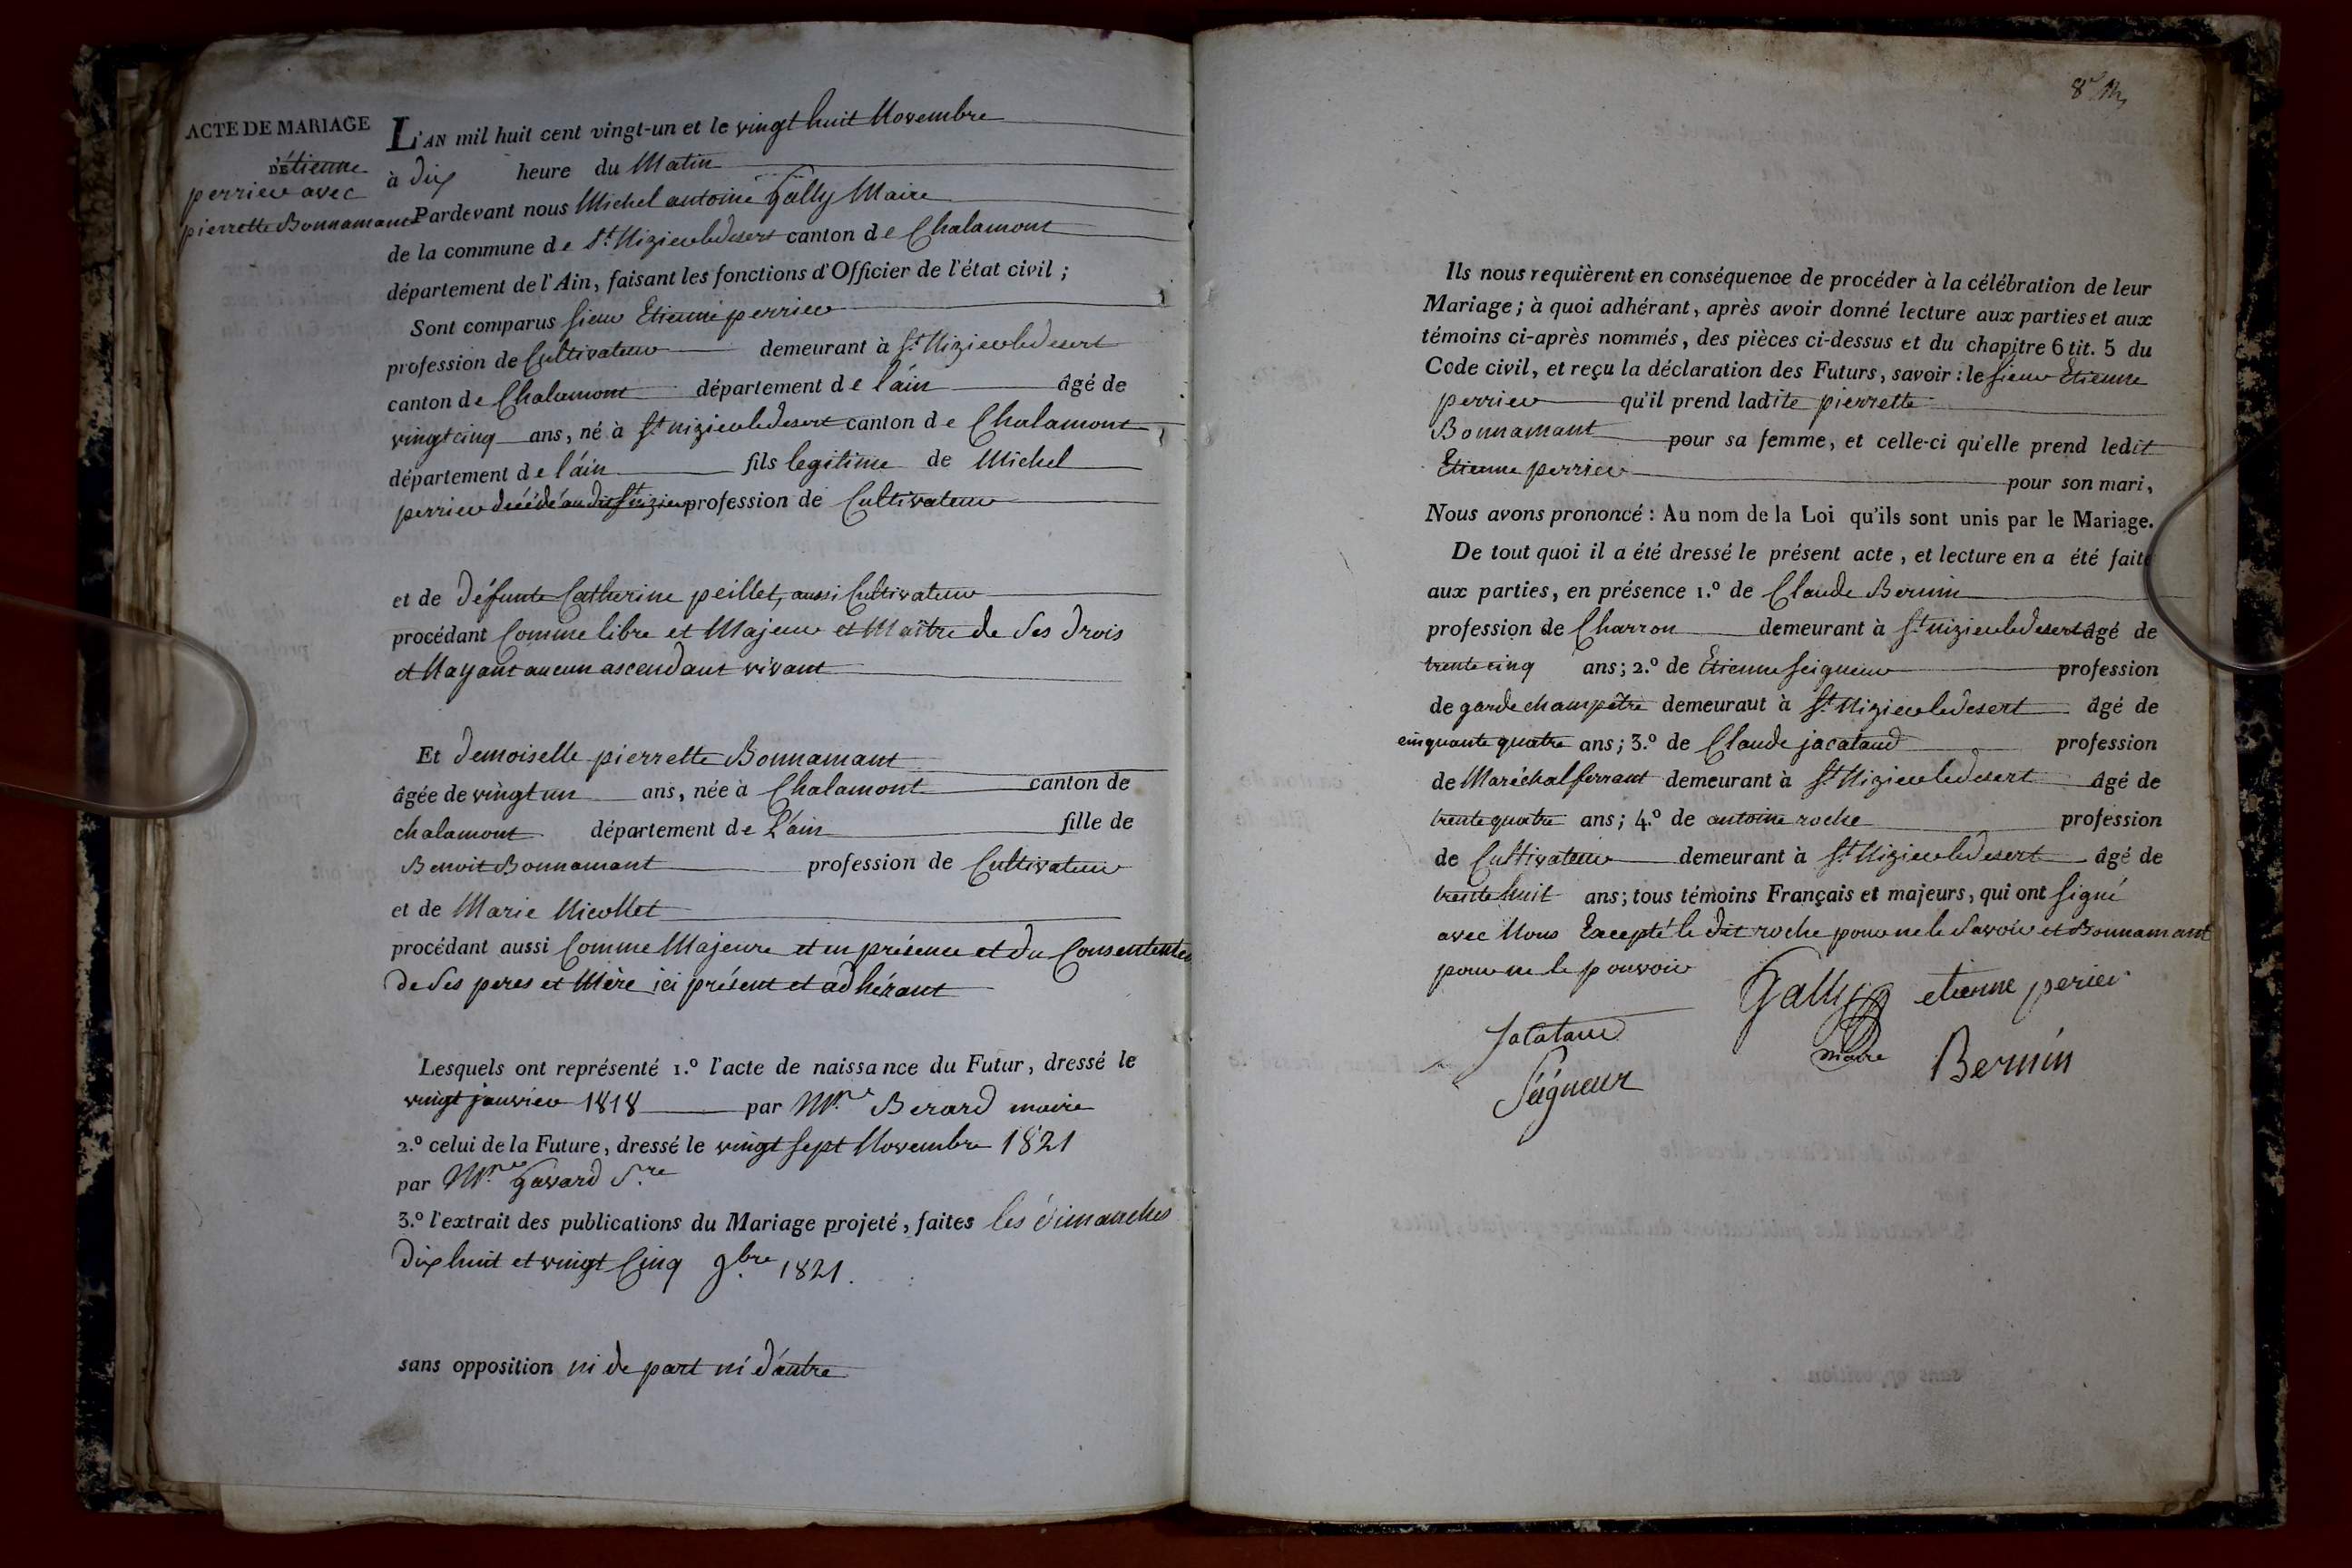 ACTE DE MARIAGE
D'étienne
perrier avec
pierrette Bonnamant
L'AN mil huit cent vingt-un et le vingt huit Novembre
à dix heure du Matin
Pardevant nous Michel antoine Gally Maire
de la commune de St. Nizier le desert canton de Chalamont
département de l'Ain, faisant les fonctions d'Officier de l'état civil ;
Sont comparus sieur Etienne perrier
profession de Cultivateur demeurant à St. Nizier le desert
canton de Chalamont département de l'áin âgé de
vingt cinq ans, né à St. nizier le desert canton de Chalamont
département de l'áin fils legitime de Michel
perrier décédé au dit St nizier profession de Cultivateur
et de défunte Catherine peillet, aussi Cultivateur
procédant Comme libre et Majeur et Maître de ses drois
et Nayant aucun ascendant vivant
Et demoiselle pierrette Bonnamant
âgée de vingt un ans, née à Chalamont canton de
chalamont département de L'áin fille de
Benoit Bonnamant profession de Cultivateur
et de Marie Nicollet
procédant aussi Comme Majeure et en présence et du
de ses peres et Mère ici présent et adhérant
Lesquels ont représenté 1.º l'acte de naissance du Futur, dressé le
vingt janvier 1818 par Mr. Berard maire
2.º celui de la Future, dressé le vingt sept Novembre 1821
par Mr. Gavard S.re
3.º l'extrait des publications du Mariage projeté, faites les dimanches
dix huit et vingt Cinq 9.bre 1821.
sans opposition ni de part ni d'autre
8
Ils nous requièrent en conséquence de procéder à la célébration de leur
Mariage ; à quoi adhérant, après avoir donné lecture aux parties et aux
témoins ci-après nommés, des pièces ci-dessus et du chapitre 6 tit. 5 du
Code civil, et reçu la déclaration des Futurs, savoir : le sieur Etienne
perrier qu'il prend ladite pierrette
Bonnamant pour sa femme, et celle-ci qu'elle prend ledit
Etienne perrier
pour son mari,
Nous avons prononcé : Au nom de la Loi qu'ils sont unis par le Mariage.
De tout quoi il a été dressé le présent acte, et lecture en a été faite
aux parties, en présence 1.º de Claude Bernin
profession de Charron demeurant à St. nizier le desert âgé de
trente cinq ans ; 2.º de Etienne seigneur profession
de garde champêtre demeurant à St. Nizier le desert âgé de
cinquante quatre ans ; 3.º de Claude jacataud profession
de Maréchal ferrant demeurant à St. Nizier le desert âgé de
trente quatre ans ; 4.º de antoine roche profession
de Cultivateur demeurant à St. Nizier le desert âgé de
trente huit ans ; tous témoins Français et majeurs, qui ont signé
avec Nous Excepté le dit roche pour ne le savoir et Bonnamant
pour ne le pouvoir
Gally etienne perier
Jacataud maire Bernin
Seigneur